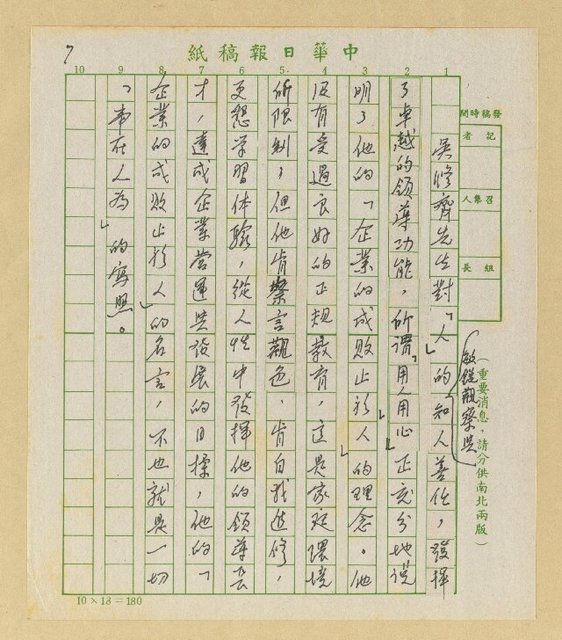 7
中華日報稿紙
10 9 8 7 6 5 4 3 2 1
發稿時間
記者
召集人
組長
(重要消息,請分供南北兩版)
敏銳觀察與
吳修齊先生對「人」的知人善任,發揮
了卓越的領導功能,所謂「用人用心」正充分地說
明了他的「企業的成敗止於人」的理念。他
沒有受過良好的正規教育,這是家庭環境
所限制,但他肯察言觀色,肯自我進修,
更懇學習体驗,從人性中發揮他的領導長
才,達成企業營運與發展的目標,他的「
企業的成敗止於人」的名言,不也就是一切
「事在人為」的寫照。
10×18=180